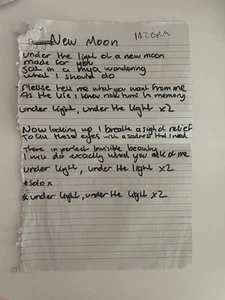 New Moon
Under the light of a new moon
made for you
Still in a maya wondering
what I should do
Please tell me what you want from me
As the life I knew now turns in memory
under light, under the light x2
Now looking up I breathe a sigh of relief
To these eyes with a sadness that I need
There in perfect invisible beauty
I will do exactly what you ask of me
under light, under the light x2
*Solo x
* under light, under the light x2